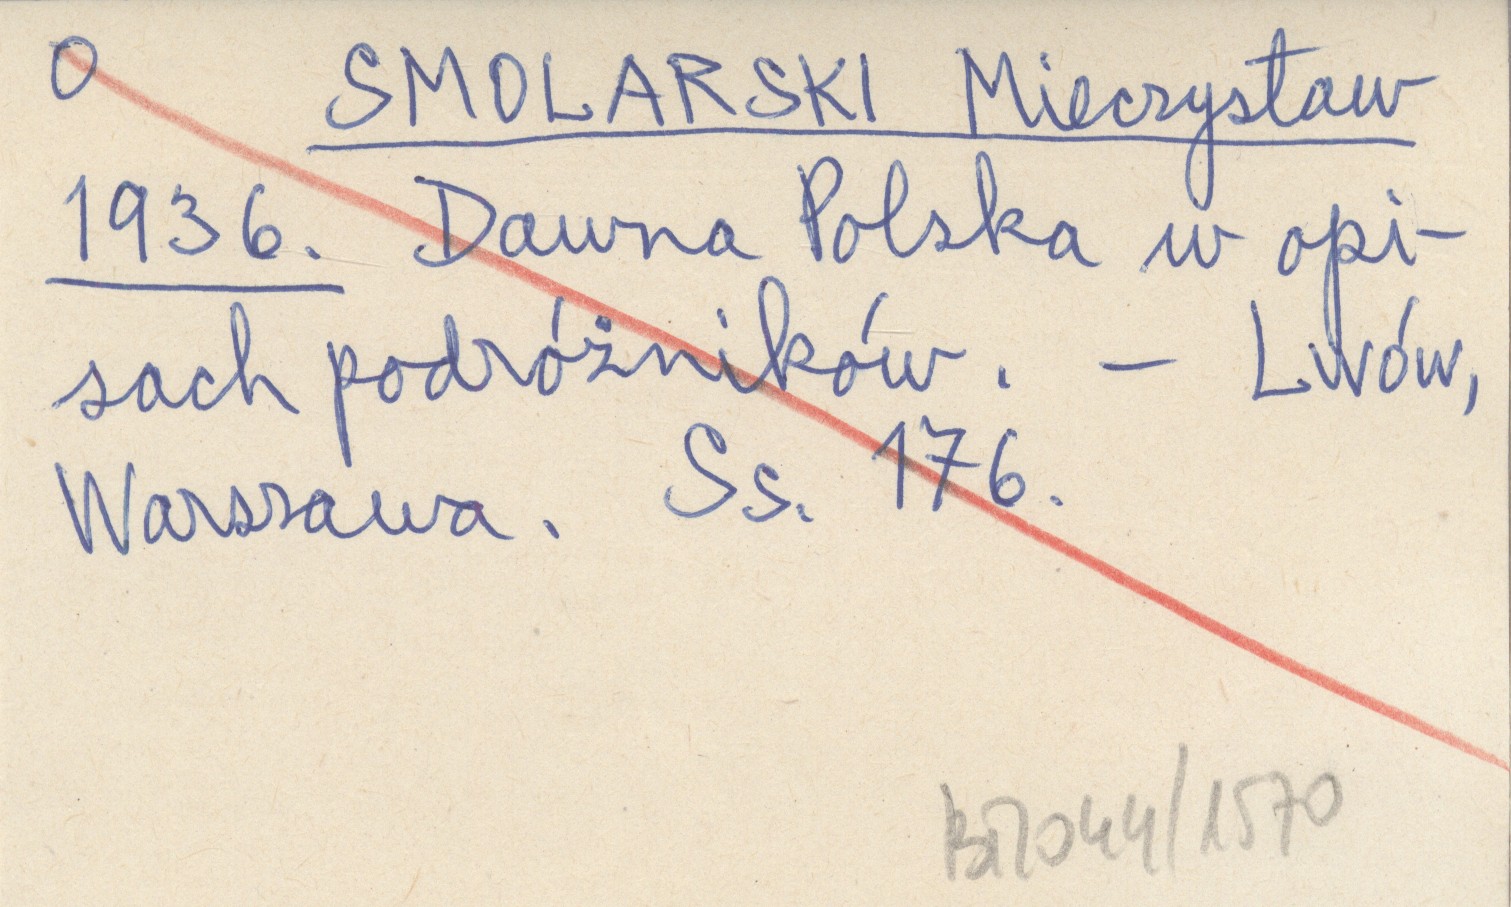 O SMOLARSKI Mieczysław
1936. Dawna Polska w opi-
sach podróżników. – Lwów,
Warszawa. Ss. 176.